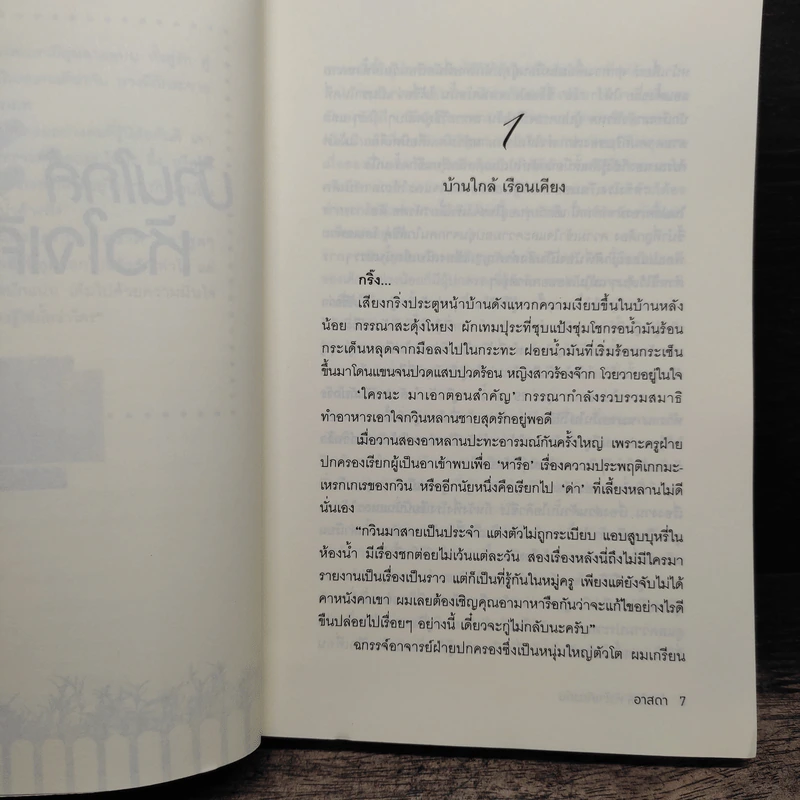 1
บ้านใกล้ เรือนเคียง
กริ๊ง...
เสียงกริ่งประตูหน้าบ้านดังแหวกความเงียบขึ้นในบ้านหลัง
น้อย กรรณาสะดุ้งโหยง ผักเทมปุระที่ชุบแป้งชุ่มโชกรอน้ำมันร้อน
กระเด็นหลุดจากมือลงไปในกระทะ ฝอยน้ำมันที่เริ่มร้อนกระเซ็น
ขึ้นมาโดนแขนจนปวดแสบปวดร้อน หญิงสาวร้องจ๊าก โวยวายอยู่ในใจ
‘ใครนะ มาเอาตอนสำคัญ’ กรรณากำลังรวบรวมสมาธิ
ทำอาหารเอาใจกวินหลานชายสุดรักอยู่พอดี
เมื่อวานสองอาหลานปะทะอารมณ์กันครั้งใหญ่ เพราะครูฝ่าย
ปกครองเรียกผู้เป็นอาเข้าพบเพื่อ ‘หารือ’ เรื่องความประพฤติเกกมะ-
เหรกเกเรของกวิน หรืออีกนัยหนึ่งคือเรียกไป ‘ด่า’ ที่เลี้ยงหลานไม่ดี
นั่นเอง
“กวินมาสายเป็นประจำ แต่งตัวไม่ถูกระเบียบ แอบสูบบุหรี่ใน
ห้องน้ำ มีเรื่องชกต่อยไม่เว้นแต่ละวัน สองเรื่องหลังนี่ถึงไม่มีใครมา
รายงานเป็นเรื่องเป็นราว แต่ก็เป็นที่รู้กันในหมู่ครู เพียงแต่ยังจับไม่ได้
คาหนังคาเขา ผมเลยต้องเชิญคุณอามาหารือกันว่าจะแก้ไขอย่างไรดี
ขืนปล่อยไปเรื่อยๆ อย่างนี้ เดี๋ยวจะกู่ไม่กลับนะครับ”
ฉกรรจ์อาจารย์ฝ่ายปกครองซึ่งเป็นหนุ่มใหญ่ตัวโต ผมเกรียน
อาสดา 7
บ้านใกล้